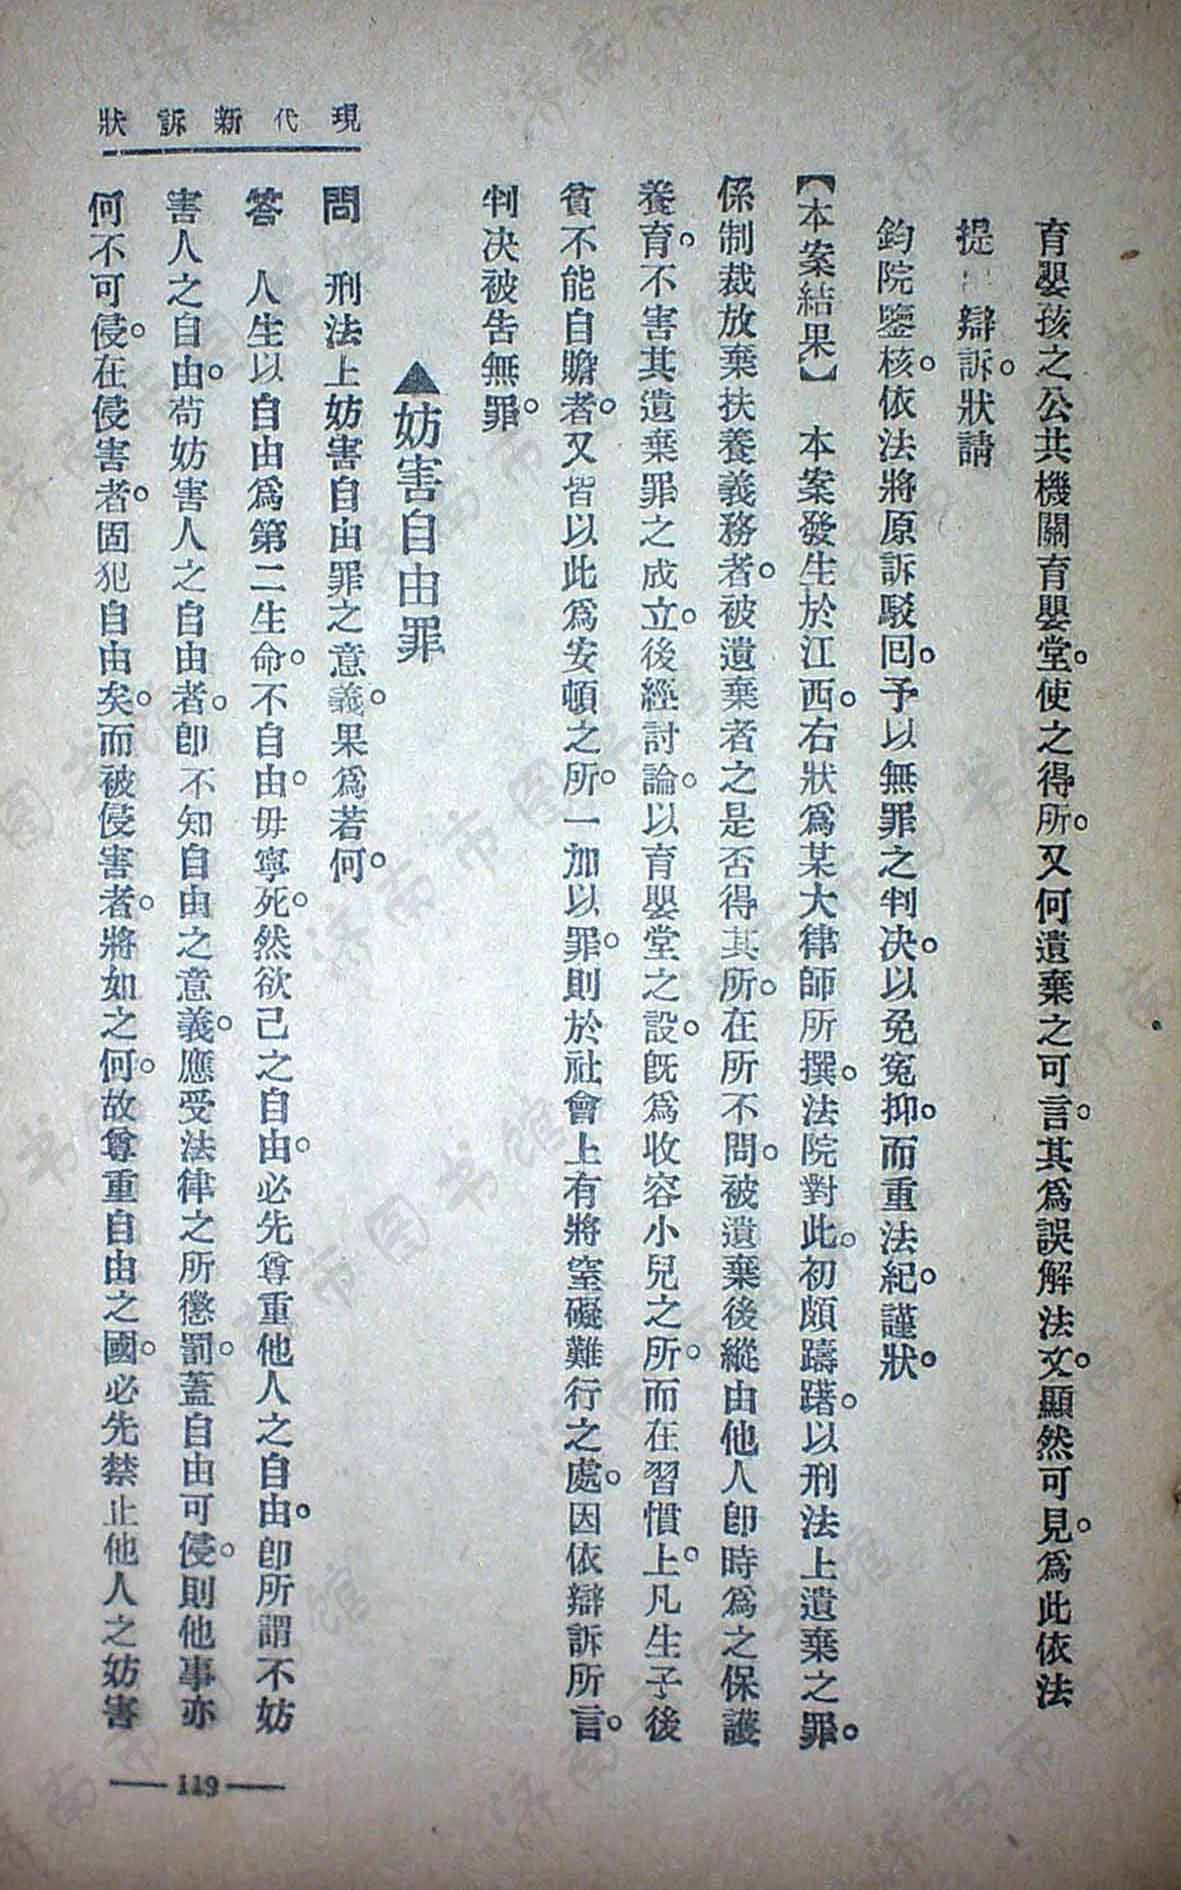 育嬰孩之公共機關育嬰堂。使之得所。又何遺棄之可言。其爲誤解法文。顯然可見。爲此依法
提 辯訴。狀請
鈞院鑒核。依法將原訴駁回。予以無罪之判決。以免冤抑。而重法紀。謹狀。
【本案結果】 本案發生於江西。右狀爲某大律師所撰。法院對此。初頗躊躇。以刑法上遺棄之罪。
係制裁放棄扶養義務者。被遺棄者之是否得其所。在所不問。被遺棄後縱由他人卽時爲之保護
養育。不害其遺棄罪之成立。後經討論。以育嬰堂之設。旣爲收容小兒之所。而在習慣上。凡生子後
貧不能自贍者。又皆以此爲安頓之所。一加以罪。則於社會上有將窒礙難行之處。因依辯訴所言。
判决被告無罪。
▲妨害自由罪
問 刑法上妨害自由罪之意義。果爲若何。
答 人生以自由爲第二生命。不自由。毋寧死。然欲己之自由。必先尊重他人之自由。卽所謂不妨
害人之自由。苟妨害人之自由者。卽不知自由之意義。應受法律之所懲罰。蓋自由可侵。則他事亦
何不可侵。在侵害者。固犯自由矣。而被侵害者。將如之何。故尊重自由之國。必先禁止他人之妨害
現代新訴狀
119
济南市图书馆